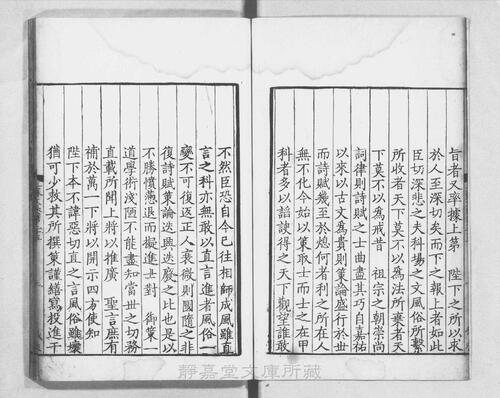 旨者又卒據上第　陛下之所以求
於人至深切矣而下之報上者如此
臣切深悲之夫科場之文風俗所繫
所收者天下莫不以為法所棄者天
下莫不以為戒昔　祖宗之朝崇尚
詞律則詩賦之士曲盡其巧自嘉祐
以來以古文為貴則策論盛行於世
而詩賦幾至於熄何者利之所在人
無不化今始以策取士而士之在甲
科者多以謟諛得之天下觀望誰敢
不然臣恐自今已往相師成風雖直
言之科亦無敢以直言進者風俗一
變不可復返正人衰微則國隨之非
復詩賦策論迭興迭廢之比也是以
不勝憤懣退而擬進士對　御策一
道學術淺陋不能盡知當世之切務
直載所聞上將以推廣　聖言庶有
補於萬一下將以開示四方使知
陛下本不諱惡切直之言風俗雖壞
猶可少救其所撰策謹繕寫投進干
靜嘉堂文庫所藏